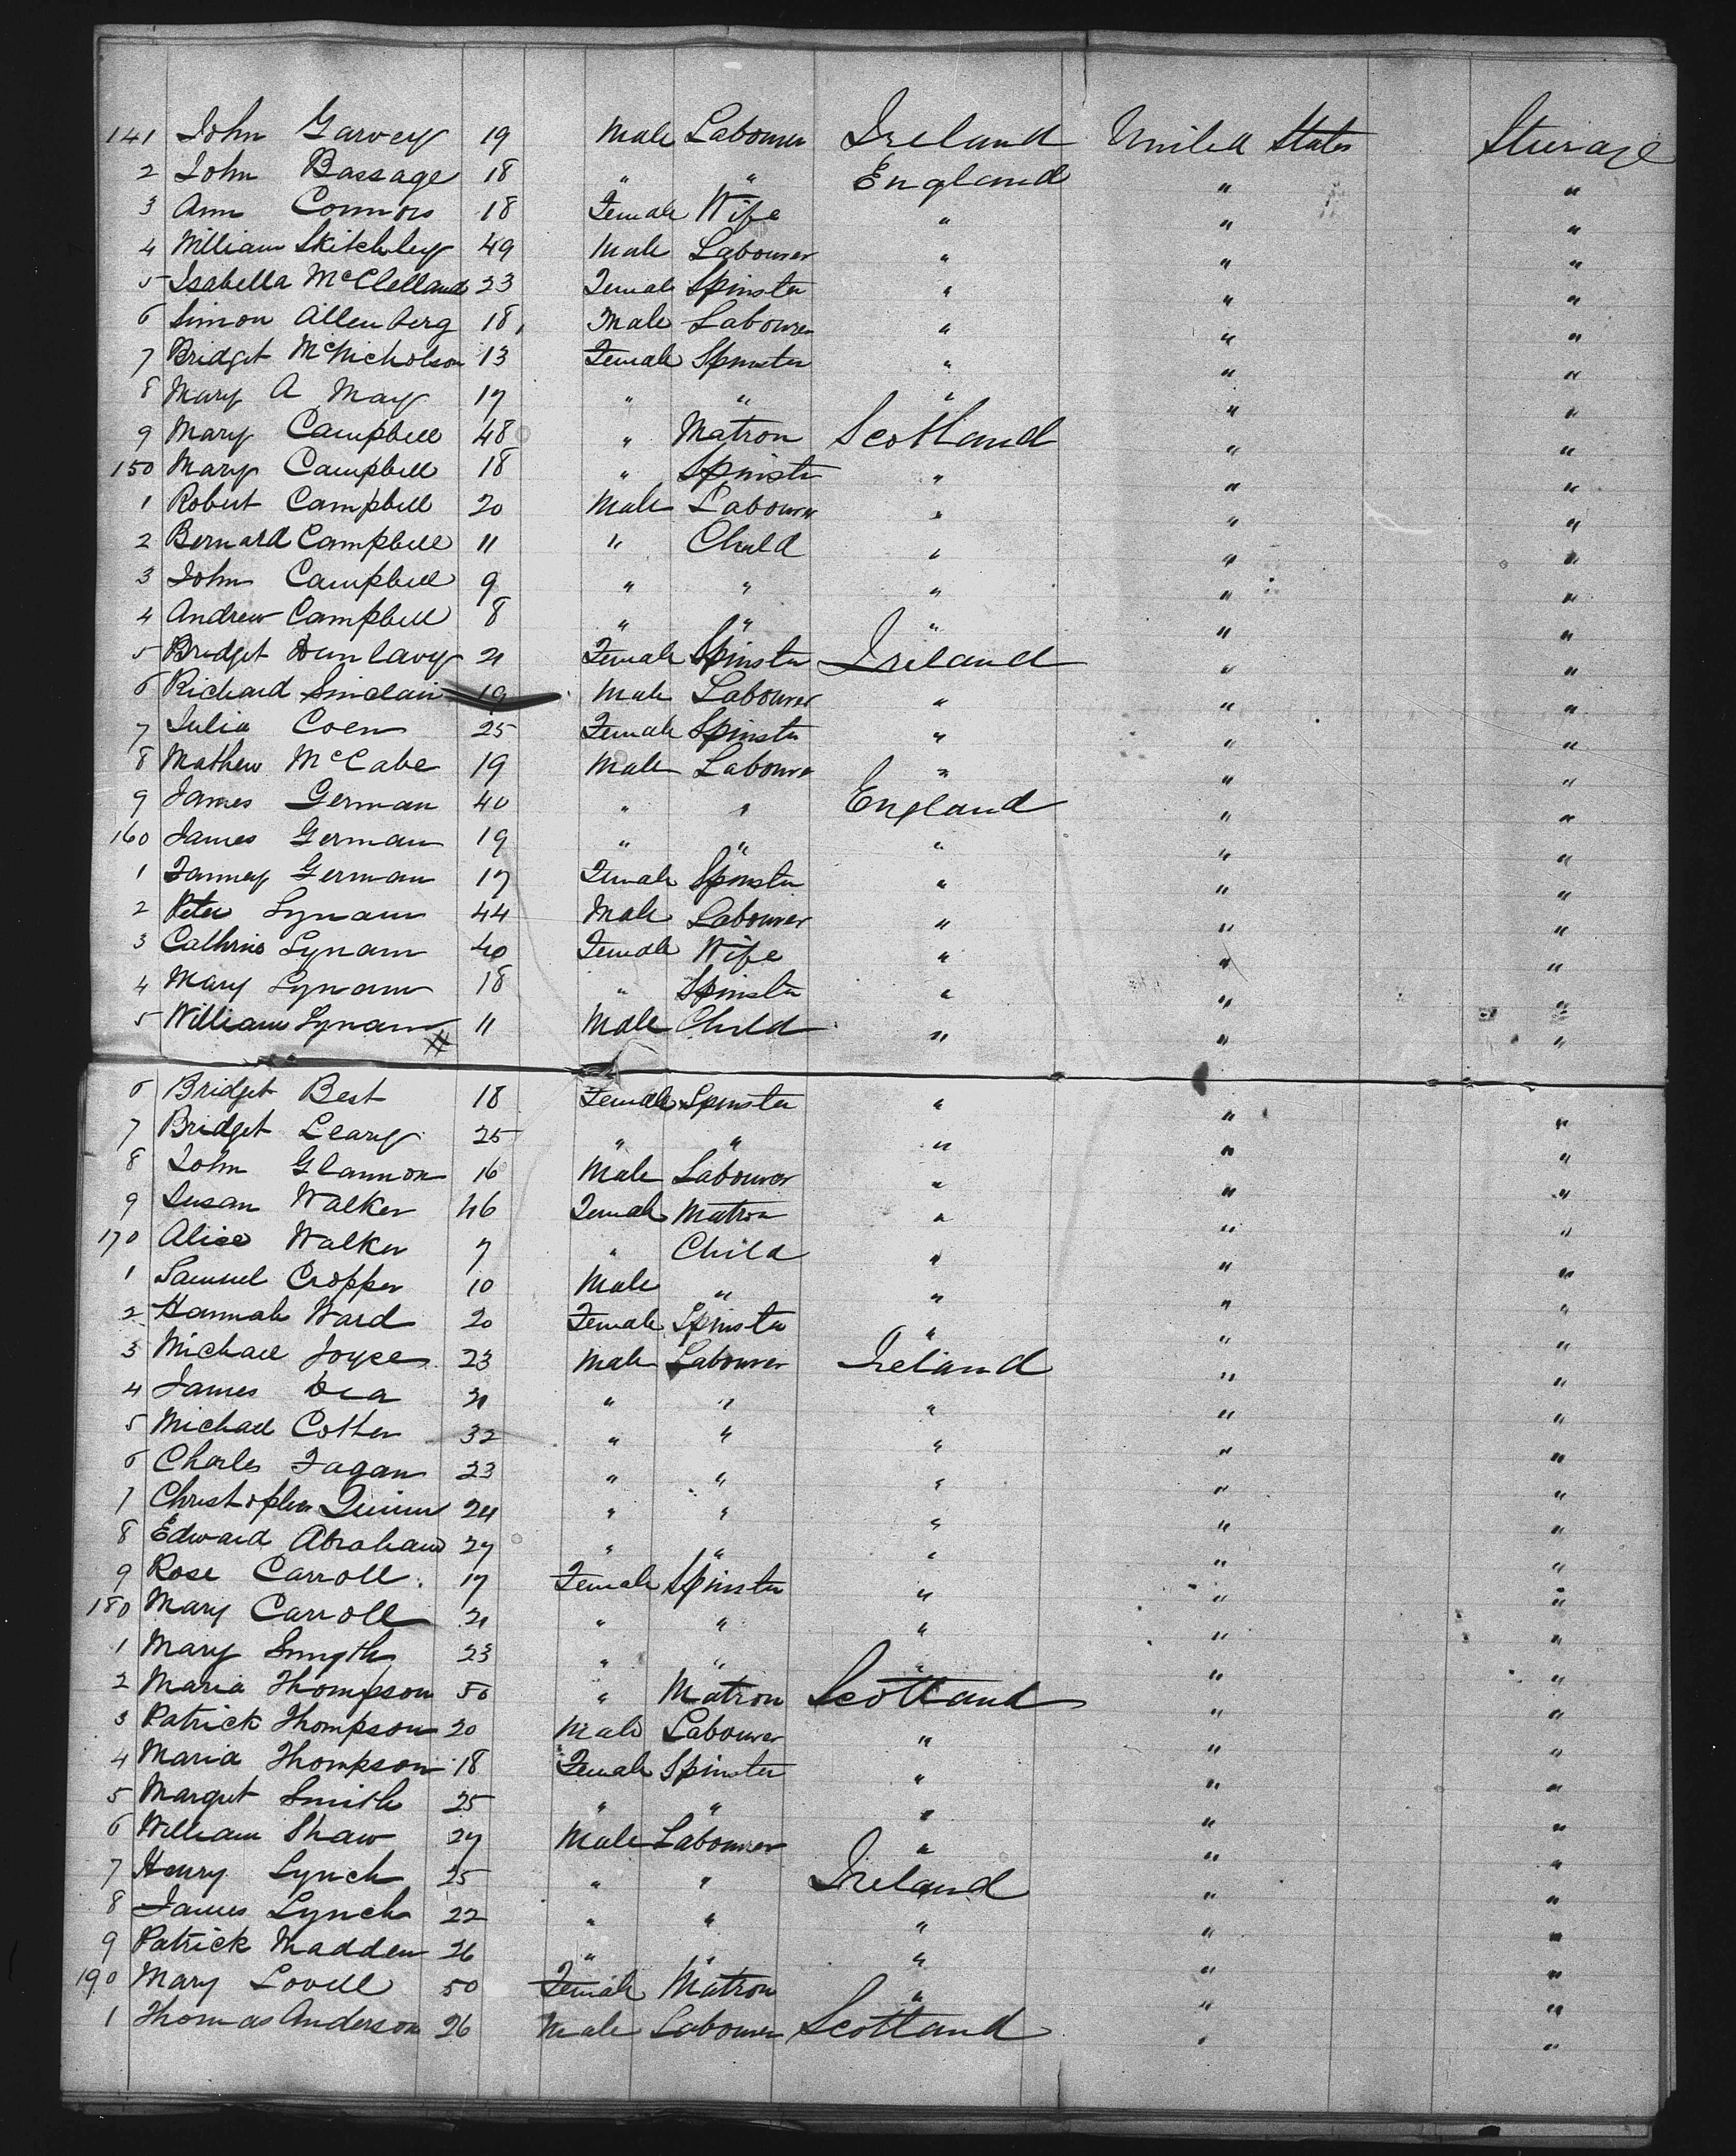 141 John Garvey 19 Male Labourer Ireland United States Steerage
2 John Bassage 18 " " England " "
3 Ann Connors 18 Female Wife " " "
4 William Skitchley 49 Male Labourer " " "
5 Isabella McClelland 23 Female Spinster " " "
6 Simon Allenberg 18 Male Labourer " " "
7 Bridget McNicholson 13 Female Spinster " " "
8 Mary A May 17 " " " " "
9 Mary Campbell 48 " Matron Scotland " "
150 Mary Campbell 18 " Spinster " " "
1 Robert Campbell 20 Male Labourer " " "
2 Bernard Campbell 11 " Child " " "
3 John Campbell 9 " " " " "
4 Andrew Campbell 8 " " " " "
5 Bridget Dunlavy 21 Female Spinster Ireland " "
6 Richard Sinclair 19 Male Labourer " " "
7 Julia Coen 25 Female Spinster " " "
8 Mathew McCabe 19 Male Labourer " " "
9 James German 40 " " England " "
160 James German 19 " " " " "
1 Fanney German 17 Female Spinster " " "
2 Peter Lynam 44 Male Labourer " " "
3 Cathrine Lynam 40 Female Wife " " "
4 Mary Lynam 18 " Spinster " " "
5 William Lynam 11 Male Child " " "
6 Bridget Best 18 Female Spinster " " "
7 Bridget Leary 25 " " " " "
8 John Glannon 16 Male Labourer " " "
9 Susan Walker 46 Female Matron " " "
170 Alice Walker 7 " Child " " "
1 Samuel Cropper 10 Male " " " "
2 Hannah Ward 20 Female Spinster " " "
3 Michael Joyce 23 Male Labourer Ireland " "
4 James Dea 21 " " " " "
5 Michael Cotter 32 " " " " "
6 Charles Fagan 23 " " " " "
7 Christopher Quinn 24 " " " " "
8 Edward Abraham 27 " " " " "
9 Rose Carroll 17 Female Spinster " " "
180 Mary Carroll 21 " " " " "
1 Mary Smyth 23 " " " " "
2 Maria Thompson 50 " Matron Scotland " "
3 Patrick Thompson 20 Male Labourer " " "
4 Maria Thompson 18 Female Spinster " " "
5 Margret Smith 25 " " " " "
6 William Shaw 27 Male Labourer " " "
7 Henry Lynch 25 " " Ireland " "
8 James Lynch 22 " " " " "
9 Patrick Madden 26 " " " " "
190 Mary Lovell 50 Female Matron " " "
1 Thomas Anderson 26 Male Labourer Scotland " "